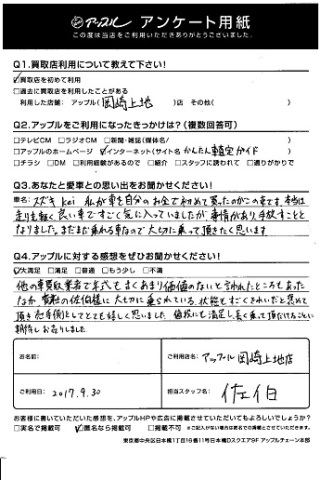 アップル アンケート用紙
この度は当店をご利用いただきありがとうございました。
Q1.買取店利用について教えて下さい!
買取店を初めて利用
□過去に買取店を利用したことがある
利用した店舗: アップル( 岡崎上地 )店 その他( )
Q2.アップルをご利用になったきっかけは?(複数回答可)
□テレビCM □ラジオCM □新聞・雑誌(媒体名/ )
□アップルのホームページ インターネット(サイト名 かんたん車査定ガイド )
□チラシ □DM □利用経験があるので □紹介 □スタッフに誘われて □通りがかりで
Q3.あなたと愛車との思い出をお聞かせください!
車名: スズキ Kei 私が車を自分のお金で初めて買ったのがこの車です。本当に
走りも軽く良い車ですごく気に入っていましたが、事情があり、手放すことと
なりました。まだまだ乗れる車なので大切に乗って頂きたく思います
Q4.アップルに対する感想をぜひお聞かせください!
大満足 □満足 □普通 □もう少し □不満
他の車買取業者で年式も古くあまり価値のないと言われたところもあった
なか、貴殿の佐伯様に大切に乗られている、状態もすごくきれいだと褒めて
頂き 売手側としてとても嬉しく思いました。値段にも満足し、長く乗って頂けることに
期待しております
お名前:
ご利用店名: アップル岡崎上地店
ご利用日: 2017.9.30
担当スタッフ名: 佐伯
お客様に書いていただいた感想を、アップルHPや広告に掲載させていただいてもよろしいでしょうか?
□実名で掲載可 匿名なら掲載可 □掲載不可 ※ご記入がない場合は匿名での掲載とさせていただきます。
東京都中央区日本橋1丁目16番11号日本橋Dスクエア9F アップルチェーン本部